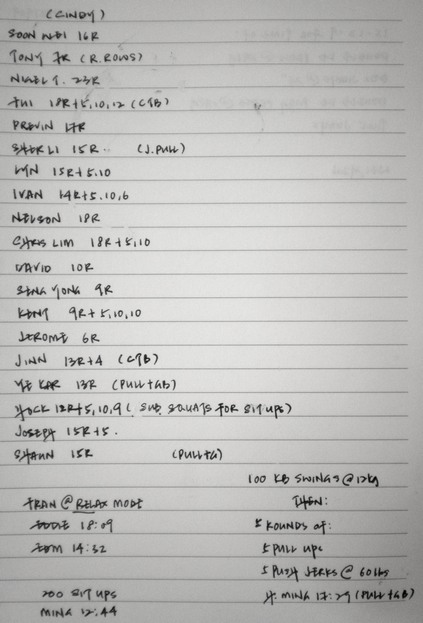 (CINDY)
SOON NEI 16R
TONY 7R (R.ROWS)
NIGEL T. 23R
18R+5,10,12 (CTB)
PREVIN 17R
SHER LI 15R. (J.PULL)
LYN 15R+5,10
IVAN 14R+5,10,6
NELSON 18R
CHRIS LIM 18R+5,10
DAVID 10R
SENG YONG 9R
KENT 9R+5,10,10
JEROME 6R
JINN 13R+4 (CTB)
YE KAR 13R (PULL+GB)
HOCK 12R+5,10,9 (SUB SQUATS FOR SIT UPS)
JOSEPH 15R+5.
SHAUN 15R (PULL+G)
FRAN @ RELAX MODE
EDDIE 18:09
EDM 14:32
200 SIT UPS
MING 12:44
100 KB SWINGS @ 12kg
THEN:
5 ROUNDS OF:
5 PULL UPS
5 PUSH JERKS @ 60lbs
MING 17:29 (PULL+GB)